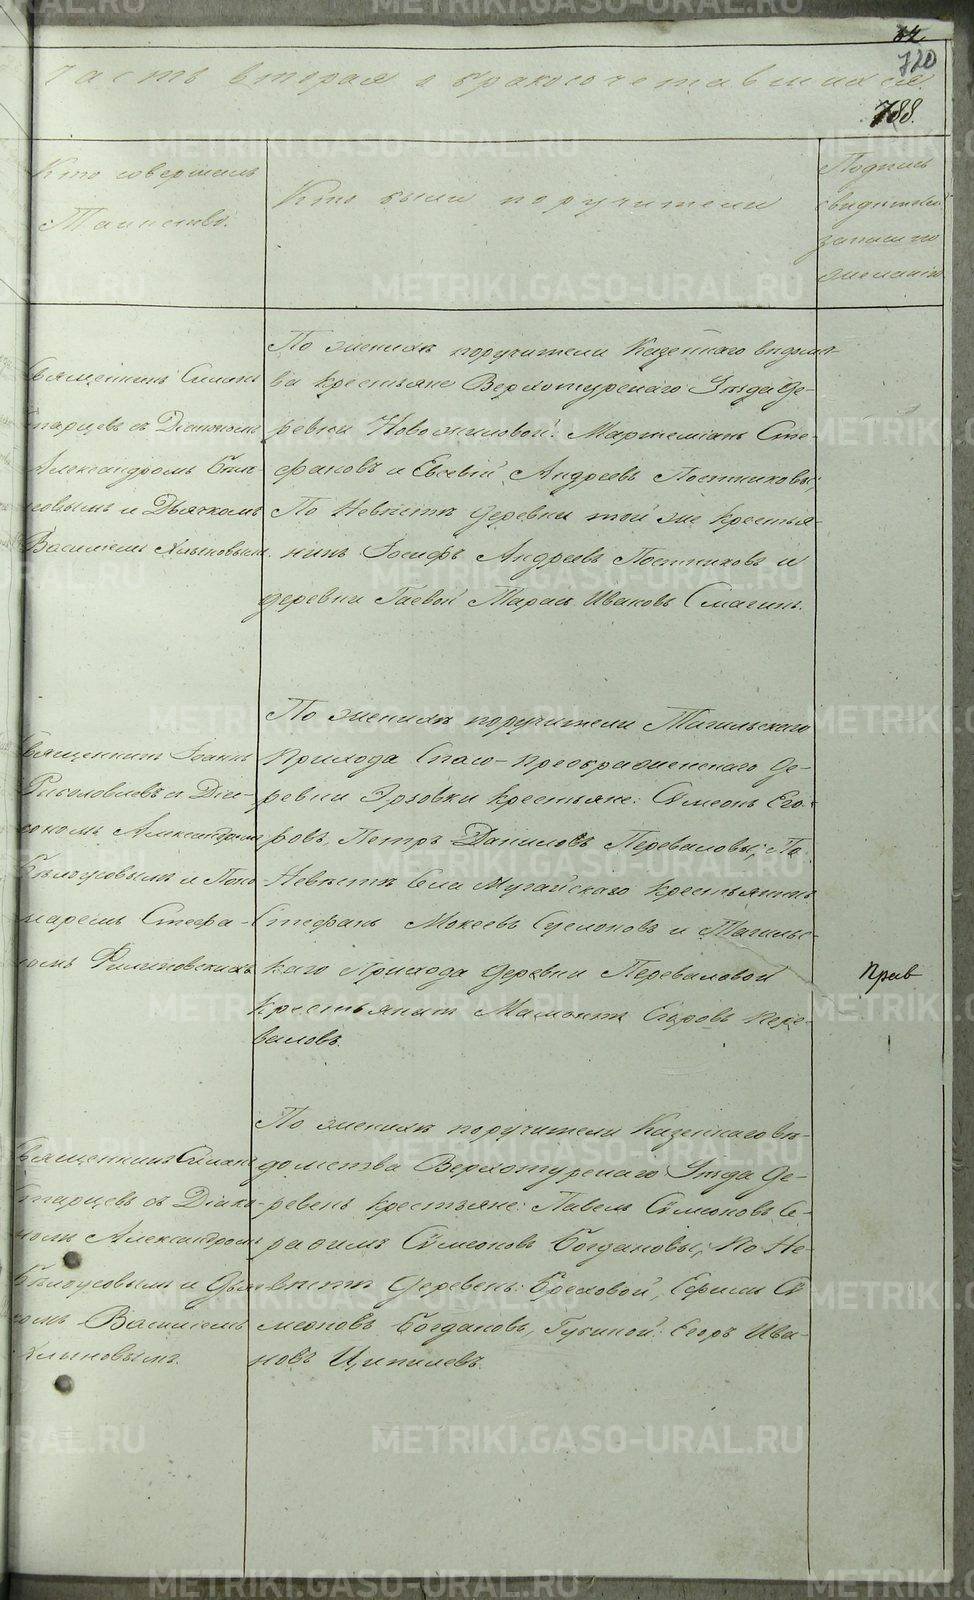 82
720
Часть вторая о бракосочетавшихся.
788.
Кто совершалъ
Таинство.
Кто были поручители
Подпись
свидетелей
записи по
желанію
Священникъ
Старцевъ съ Діакономъ
Александромъ Бѣло-
усовымъ и Дьячкомъ
Василіемъ Хлыновымъ.
По женихѣ поручители Казеннаго вѣдомст-
ва крестьяне Верхотурскаго Уѣзда де-
ревни Новожиловой: Мартеміанъ Сте-
фановъ и Евсевій Андреевъ Постниковы;
По Невѣстѣ деревни той же крестья-
нинъ Іосифъ Андреевъ Постниковъ и
деревни Гаевой Тарасъ Ивановъ Смагинъ.
Священникъ Іоаннъ
съ Діа-
кономъ Александромъ
Бѣлоусовымъ и Поно-
маремъ Стефа-
номъ
По женихѣ поручители Тагильскаго
прихода Спасо-преображенскаго де-
ревни Ерзовки крестьяне: Симеонъ Его-
ровъ, Петръ Даниловъ Переваловы; По
Невѣстѣ села Мугайскаго крестьянинъ
Стефанъ Мокеевъ Суслоновъ и Тагильс-
каго Прихода деревни Переваловой
крестьянинъ Мамонтъ Егоровъ Пере-
валовъ.
Прав
Священникъ
Старцевъ съ Діако-
номъ Александромъ
Бѣлоусовымъ и Дьяч-
комъ Василіемъ
Хлыновымъ.
По женихѣ поручители Казеннаго вѣ-
домства Верхотурскаго Уѣзда де-
ревень крестьяне: Павелъ Симеоновъ, Се-
рапимъ Симеоновъ Богдановы; По Не-
вѣстѣ деревень: Бреховой, Ефимъ Си-
меоновъ Богдановъ, Егоръ Ива-
новъ Ципилевъ.
METRIKI.GASO-URAL.RU